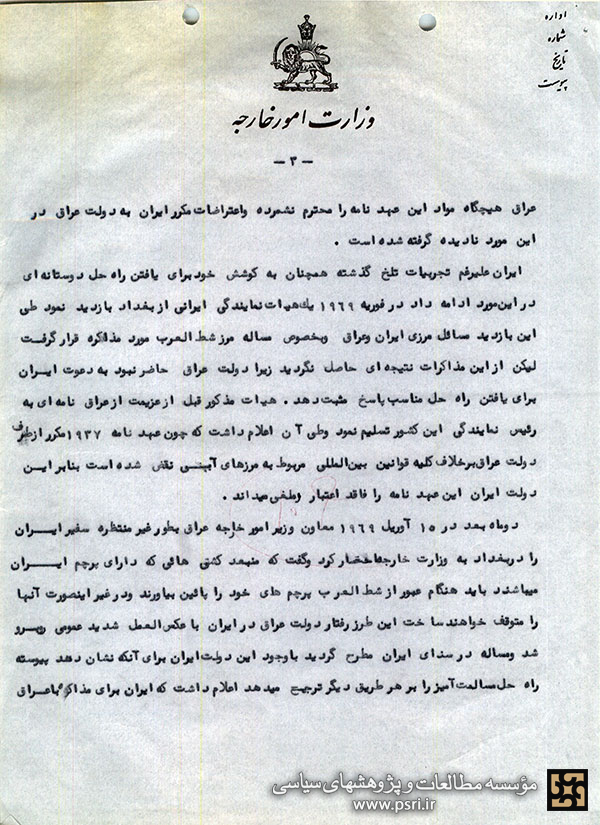 اداره
شماره
تاریخ
پیوست
وزارت امور خارجه
- ۳ -
عراق هیچگاه مواد این عهد نامه را محترم نشمرده واعتراضات مکرر ایران به دولت عراق در
این مورد نادیده گرفته شده است .
ایران علیرغم تجربیات تلخ گذشته همچنان به کوشش خود برای یافتن راه حل دوستانه ای
در این مورد ادامه داد در فوریه ۱۹۶۹ یك هیات نمایندگی ایرانی از بغداد بازدید نمود طی
این بازدید مسائل مرزی ایران وعراق وبخصوص مساله مرز شط العرب مورد مذاکره قرار گرفت
لیکن از این مذاکرات نتیجه ای حاصل نگردید زیرا دولت عراق حاضر نبود به دعوت ایران
برای یافتن راه حل مناسب پاسخ مثبت دهد . هیات مذکور قبل از عزیمت از عراق نامه ای به
رئیس نمایندگی این کشور تسلیم نمود وطی آن اعلام داشت که چون عهد نامه ۱۹۳۷ مکرر از طرف
دولت عراق برخلاف کلیه قوانین بین المللی مربوط به مرزهای آبی نقض شده است بنابر این
دولت ایران این عهد نامه را فاقد اعتبار وملغی میداند .
دوماه بعد در ۱۵ آوریل ۱۹۶۹ معاون وزیر امور خارجه عراق بطور غیر منتظره سفیر ایران
را در بغداد به وزارت خارجه احضار کرد وگفت که منبعد کشتی هائی که دارای پرچم ایران
میباشند باید هنگام عبور از شط العرب پرچم های خود را پائین بیاورند ودر غیر اینصورت آنها
را متوقف خواهند ساخت این طرز رفتار دولت عراق در ایران با عکس العمل شدید عمومی روبرو
شد ومساله در سنای ایران مطرح گردید با وجود این دولت ایران برای آنکه نشان دهد پیوسته
راه حل مسالمت آمیز را بر هر طریق دیگر ترجیح میدهد اعلام داشت که ایران برای مذاکره با عراق
مؤسسه مطالعات و پژوهشهای سیاسی
www.psri.ir